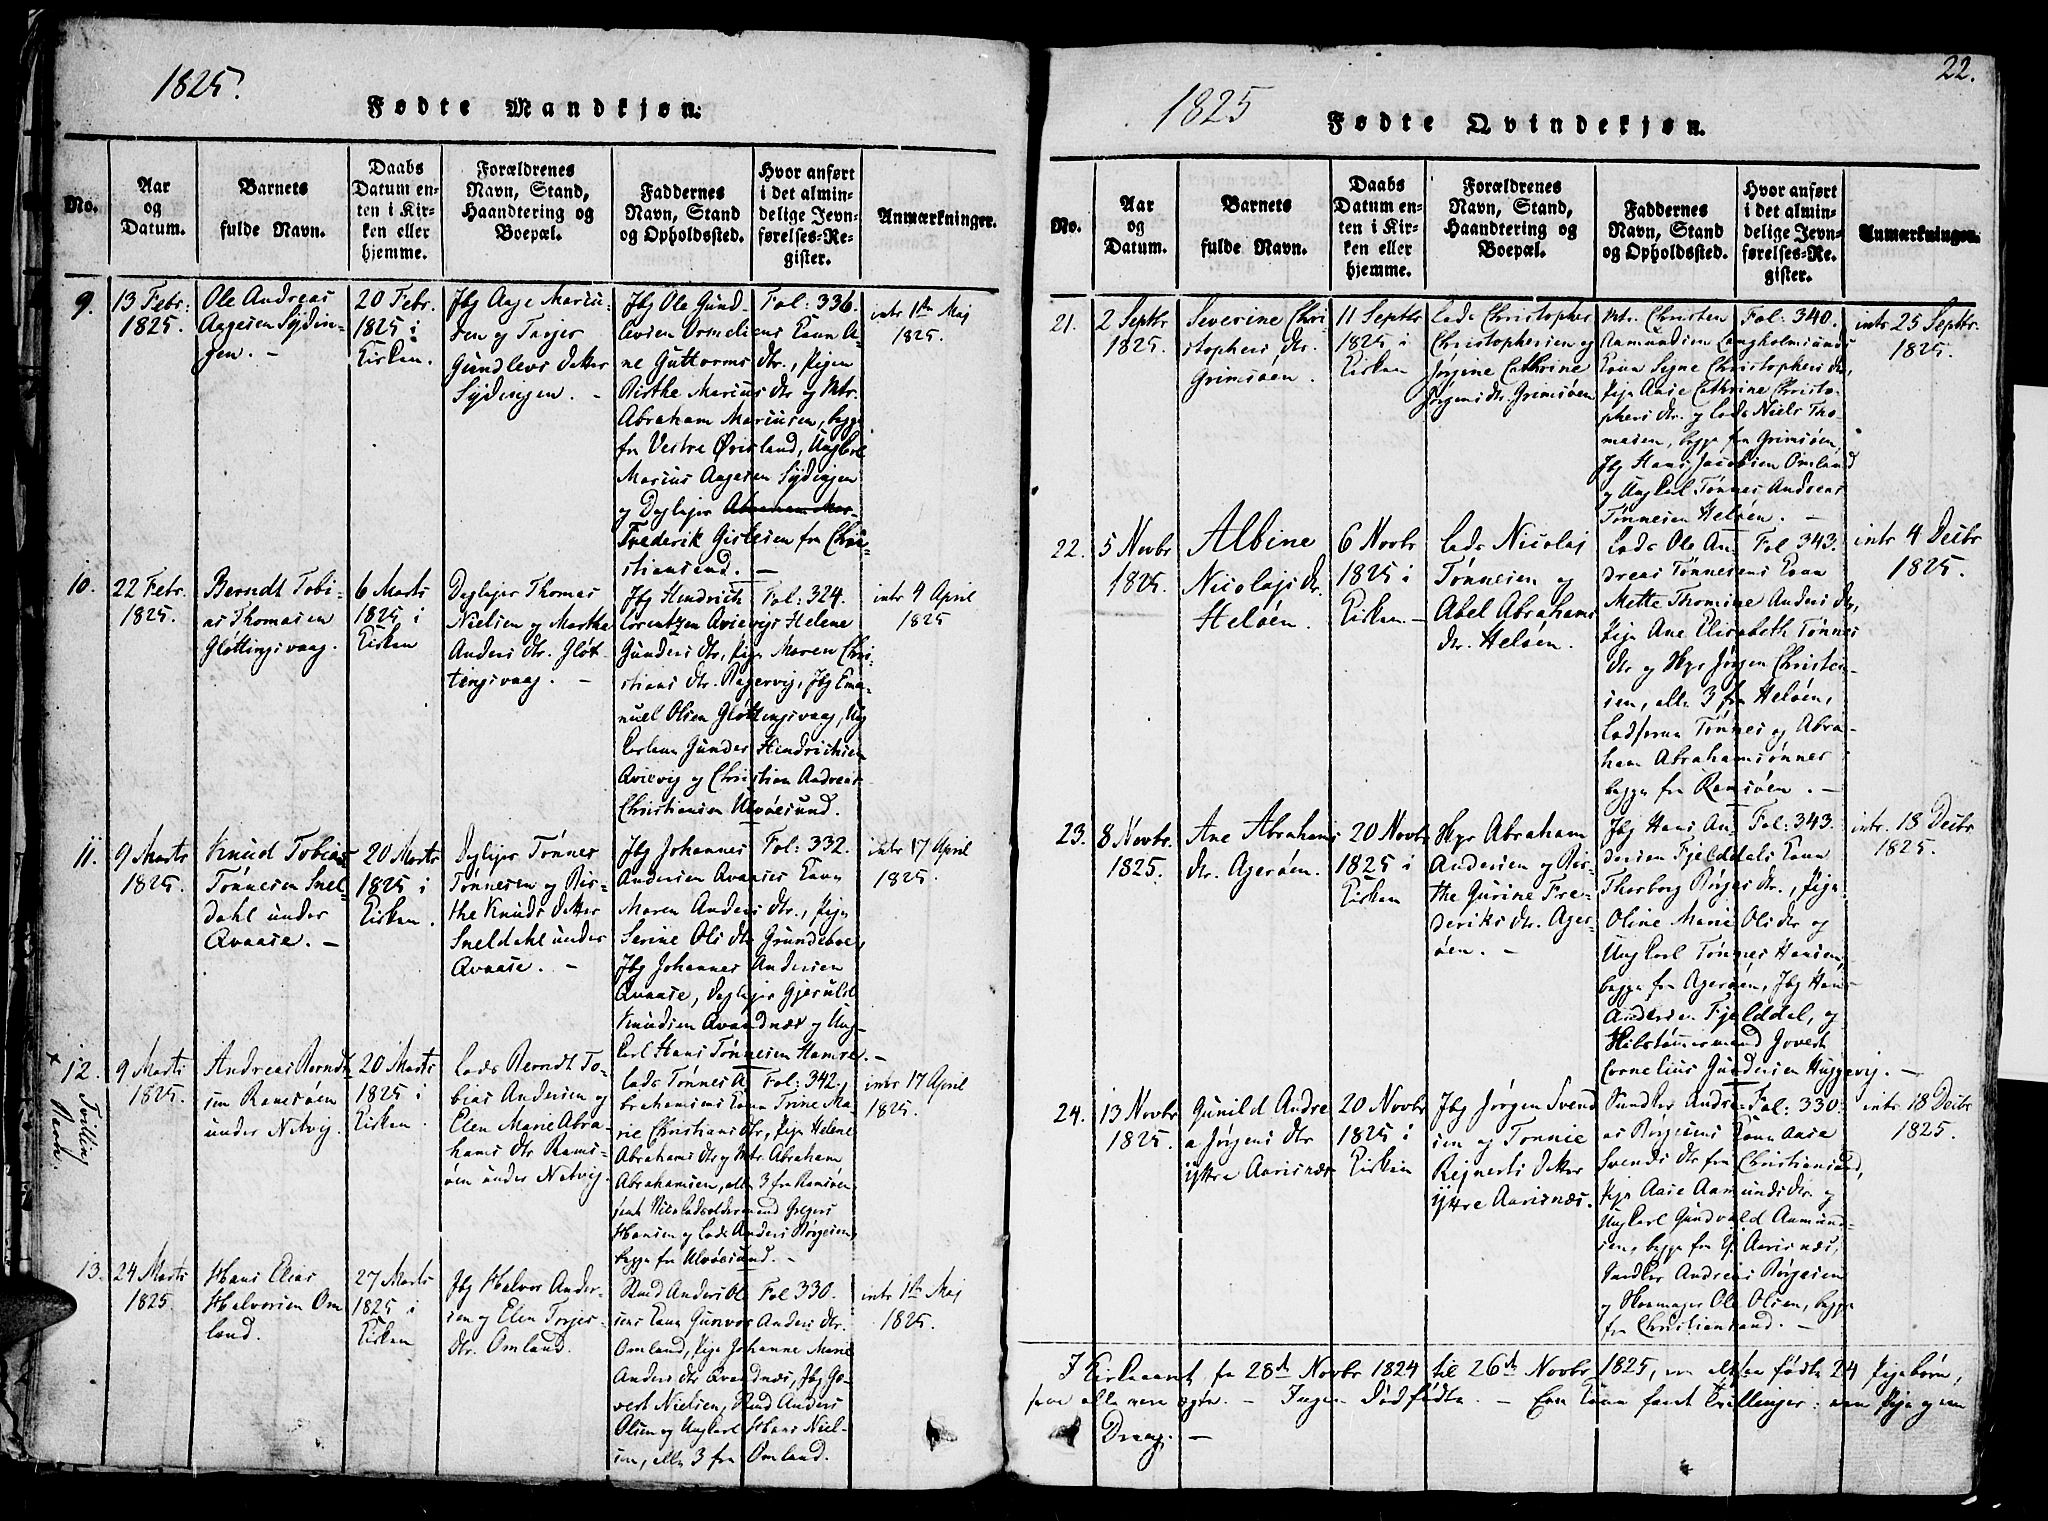 1825.
Fødte Mandkjøn.
No.
Aar
og
Datum.
Barnets
fulde Navn.
Daabs
Datum en-
ten i Kir-
ken eller
hjemme.
Forældrenes
Navn, Stand,
Haandtering og
Boepæl.
Faddernes
Navn, Stand
og Opholdssted.
Hvor anført
i det almin-
delige Jevn-
førelses-Re-
gister.
Anmærkninger.
9.
13 Febr:
1825.
Ole Andreas
Aagesen Sÿdin-
gen. -
20 Febr.
1825 i
Kirken.
Jbg Aage Mariu-
sen og Torjer
Gundlevs dotter
Sÿdingen. -
Jbg Ole Gund-
levsen Ormeliens Kone A-
ne Guttorms dtr., Pigen
Birthe Marius dtr og Mtr.
Abraham Mariusen, begge
fra Vestre Øvrisland, Ungkarl
Marius Aagesen Sÿdingen
og Deglejer Abraham Mar-
Frederik Gislesen fra Chri-
stiansand. -
Fol: 336.
intr 1ste Maj
1825.
10.
22 Febr.
1825.
Berndt Tobi-
as Thomasen
Gløttingsvaag.
6 Marts
1825 i
Kirken
Deglejer Thomas
Nielsen og Marthe
Anders dtr. Gløt-
tingsvaag. -
Jbg Hendrich
Lorentzen Avievigs Helene
Gunders dtr, Pige Maren Chri-
stians dtr. Ragevig, Jbg Ema-
nuel Olsen Gløttingsvaag, Ung
Karlene Gunder Hendrichsen
Qvievig og Christian Andreas
Christiansen Ulvøesund.
Fol: 324.
intr 4 April
1825
11.
9 Marts
1825.
Knud Tobias
Tønnesen Snel-
dahl under
Qvaase. -
20 Marts
1825 i
Kirken.
Deglejer Tønnes
Tønnesen og Bir-
the Knuds dotter
Sneldahl under
Qvaase. -
Jbg Johannes
Andersen Qvaases Kone
Maren Anders dtr., Pige
Serine Ols dtr Grundeboe,
Jbg Johannes Andersen
Qvaase, Deglejer Gjeruld
Knudsen Qvaadnæs og Ung-
Karl Hans Tønnesen Hamre. -
Fol: 332.
intr 17 April
1825.
12.
Tvilling
Mærk.
9 Marts
1825.
Andreas Berndt-
sen Ramsøen
under Netvig.
20 Marts
1825 i
Kirken.
Lods Berndt To-
bias Andersen og
Elen Marie Abra-
hams dtr Rams-
øen under Netvig.
Lods Tønnes A-
brahamsens Kone Trine Ma-
rie Christians dtr, Pige Helene
Abrahams dtr og Mtr Abraham
Abrahamsen, alle 3 fra Ramsøen
samt Vice Lodsoldermand Gregers
Hansen og Lods Anders Børgesen,
begge fra Ulvøesund. -
Fol: 342.
intr 17 April
1825.
13.
24 Marts
1825.
Hans Elias
Halvorsen Om
land.
27 Marts
1825 i
Kirken
Jbg Halvor Ander-
sen og Elen Torjes-
dtr. Omland.
Anders Ol-
sens Kone Gunvor Anders dtr.
Omland, Pige Johanne Marie
Anders dtr Qvaadnæs, Jbg Go-
vert Nielsen, Anders
Olsen og Ungkarl Hans Niel-
sen, alle 3 fra Omland.
Fol 330.
intr 1ste Maj
1825.
22.
1825
Fødte Qvindekjøn.
No.
Aar
og
Datum.
Barnets
fulde Navn.
Daabs
Datum en-
ten i Kir-
ken eller
hjemme.
Forældrenes
Navn, Stand,
Haandtering og
Boepæl.
Faddernes
Navn, Stand
og Opholdssted.
Hvor anført
i det almin-
delige Jevn-
førelses-Re-
gister.
Anmærkninger.
21.
2 Septbr
1825.
Severine Chri-
stophers dtr.
Grimsøen.
11 Septbr
1825 i
Kirken
Lods Christopher
Christophersen og
Jørgine Cathrine
Jørgens dtr. Grimsøen
Mtr. Christen
Aamundsen Langholmsunds
Kone Signe Christophers dtr,
Pige Aase Cathrine Christo-
phers dtr. og Lods Niels Tho-
masen, begge fra Grimsøen,
Jbg Hans Jacobsen Omland
og Ungkarl Tønnes Andreas
Tønnesen Helsøen. -
Fol: 340.
intr 25 Septbr.
1825.
22.
5 Novbr
1825.
Albine
Nicolajs dtr.
Helsøen.
6 Novbr
1825 i
Kirken. -
Lods Nicolaj
Tønnesen og
Abel Abrahams
dtr. Helsøen.
Lods Ole An-
dreas Tønnesens Kone
Mette Thomine Anders dtr,
Pige Ane Elisabeth Tønnes
dtr og Jørgen Christen-
sen, alle 3 fra Helsøen,
Lodserne Tønnes og Abra-
ham Abrahamsønner
begge fra Ramsøen. -
Fol 343.
intr 4 Decbr
1825.
23.
8 Novbr.
1825.
Ane Abrahams
dtr. Agerøen.
20 Novbr
1825 i
Kirken
Abraham
Andersen og Bir-
the Gurine Fre-
deriks dtr. Ager-
øen. -
Jbg Hans An-
dersen Fjelddals Kone
Thorborg Børges dtr., Pige
Oline Marie Ols dtr og
Ungkarl Tønnes Hansen,
begge fra Agerøen, Jbg Hans
Andersen Fjelddal, og
Skibstømmermand Jovert
Cornelius Gundersen Huggevig. -
Fol: 343.
intr. 18 Decbr
1825.
24.
13 Novbr
1825.
Gunild Andre
a Jørgens dtr
ÿttre Aarisnæs
20 Novbr
1825 i
Kirken
Jbg Jørgen Svend
sen og Tonnie
Rejnerts dotter
ÿttre Aarisnæs.
Snedker Andre-
as Børgesens Kone Aase
Svends dtr fra Christiansand,
Pige Aase Aamunds dtr. og
Ungkarl Gundvald Aamund-
sen, begge fra ÿ. Aarisnæs,
Snedker Andreas Børgesen
og Skomager Ole Olsen, begge
fra Christiansand. -
Fol: 330.
intr 18 Decbr
1825.
I Kirkeaaret fra 28de Novbr 1824 til 26de Novbr 1825, ere altsaa fødte 24 Pigebørn,
som alle vare ægte. - Ingen dødfødte. - Een Kone fød Tvillinger: een Pige og een
Dreng. -